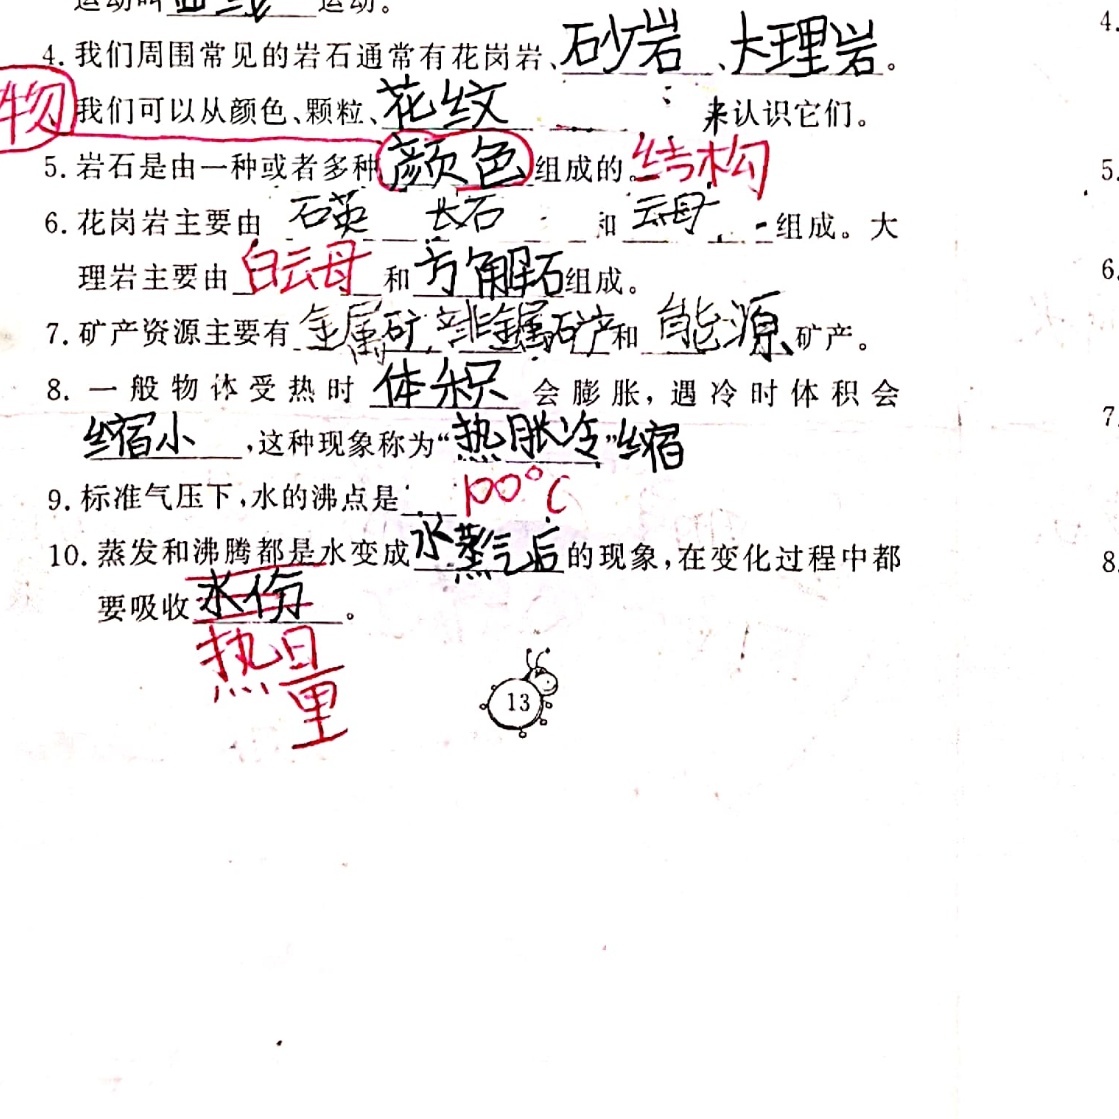 运动叫曲线运动。
4. 我们周围常见的岩石通常有花岗岩、砂岩、大理岩。
物 我们可以从颜色、颗粒、花纹 来认识它们。
5. 岩石是由一种或者多种颜色组成的。结构
6. 花岗岩主要由 石英 长石 和 云母 组成。大
理岩主要由 白云母 和 方解石组成。
7. 矿产资源主要有 金属矿产、非金属矿产和 能源 矿产。
8. 一般物体受热时 体积 会膨胀,遇冷时体积会
缩小,这种现象称为“热胀冷”缩
9. 标准气压下,水的沸点是 100°C
10. 蒸发和沸腾都是水变成水蒸气后的现象,在变化过程中都
要吸收水份。
热量
13
4.
5.
6.
7.
8.